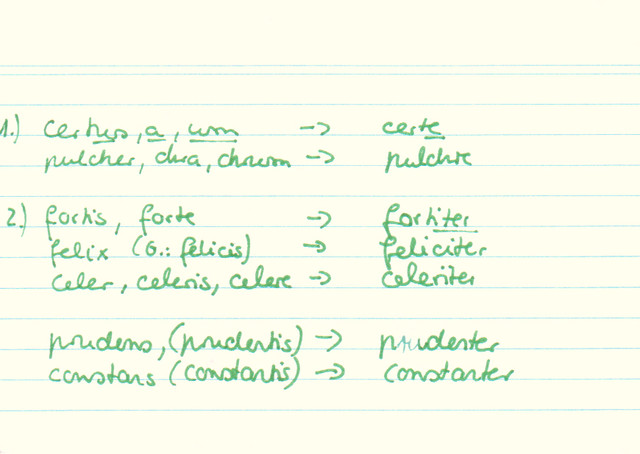 1.) certus, a, um -> certe
pulcher, chra, chrum -> pulchre
2.) fortis, forte -> fortiter
felix (G.: felicis) -> feliciter
celer, celeris, celere -> celeriter
prudens, (prudentis) -> prudenter
constans (constantis) -> constanter